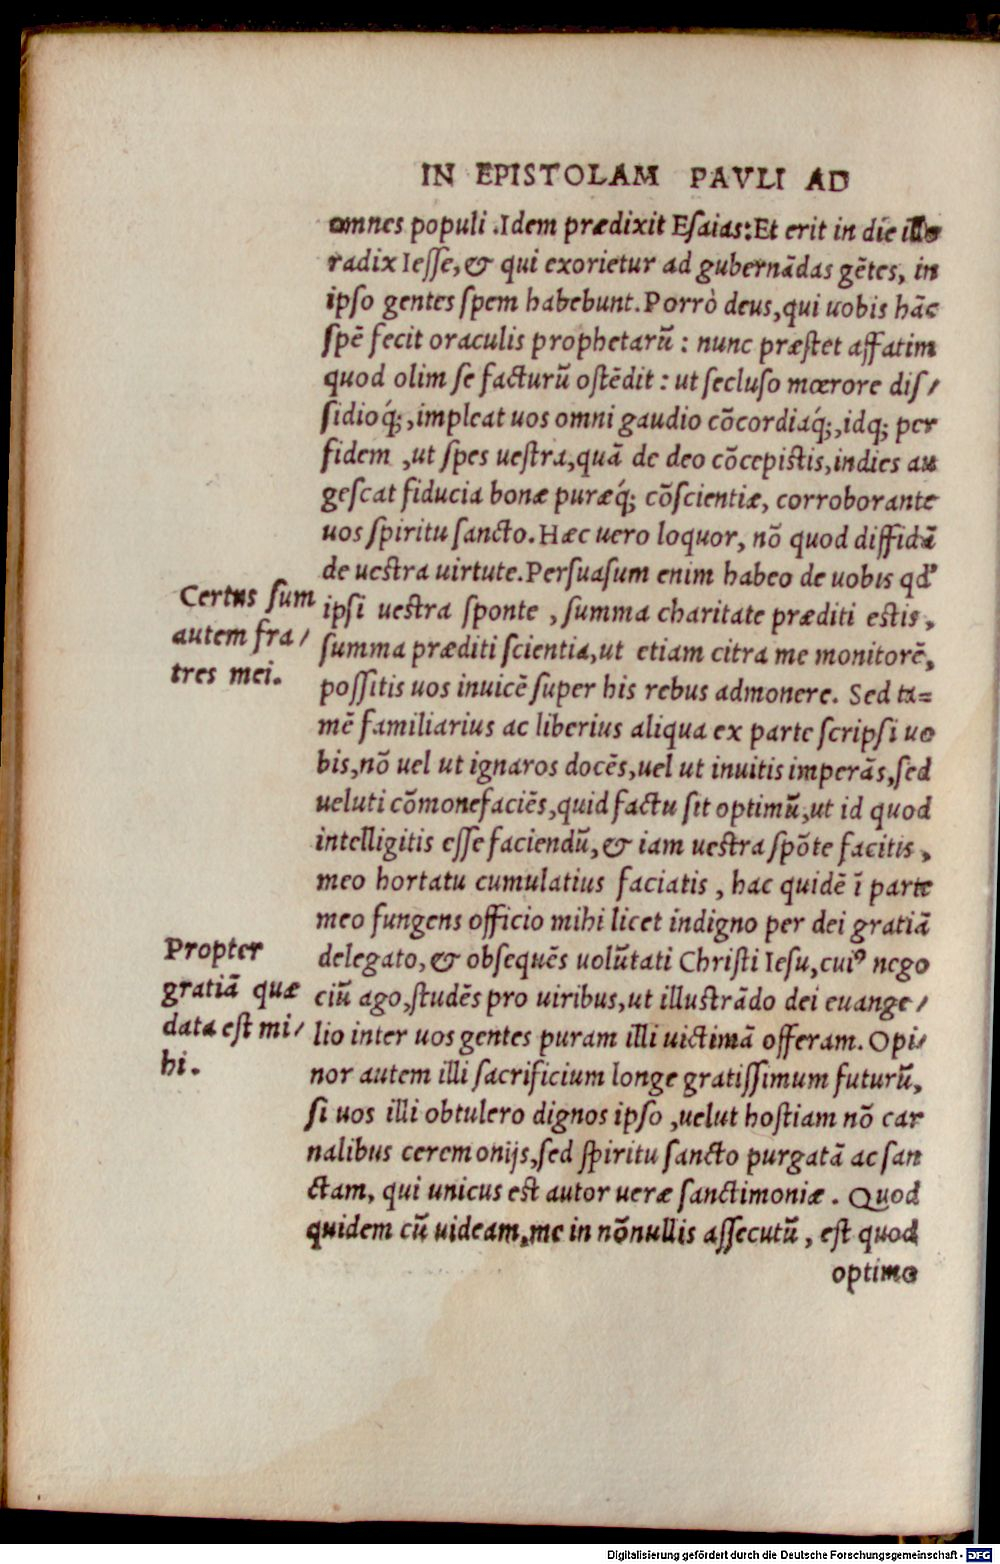 IN EPISTOLAM PAVLI AD
omnes populi .Idem prædixit Esaias: Et erit in die illo
radix Iesse, & qui exorietur ad gubernādas gētes, in
ipso gentes spem habebunt. Porrò deus, qui uobis hāc
spē fecit oraculis prophetarū : nunc præstet affatim
quod olim se facturū ostēdit : ut secluso mœrore dis/
sidioq́;, impleat uos omni gaudio cōcordiaq́;, idq; per
fidem , ut spes uestra, quā de deo cōcepistis, indies au
gescat fiducia bonæ puræq́; cōscientiæ, corroborante
uos spiritu sancto. Hæc uero loquor, nō quod diffidā
de uestra uirtute. Persuasum enim habeo de uobis qd'
Certus sum
autem fra/
tres mei.
ipsi uestra sponte , summa charitate præditi estis,
summa præditi scientia, ut etiam citra me monitorē,
possitis uos inuicē super his rebus admonere. Sed ta=
mē familiarius ac liberius aliqua ex parte scripsi uo
bis, nō uel ut ignaros docēs, uel ut inuitis imperās, sed
ueluti cōmonefaciēs, quid factu sit optimū, ut id quod
intelligitis esse faciendū, & iam uestra spōte facitis,
meo hortatu cumulatius faciatis , hac quidē ī parte
meo fungens officio mihi licet indigno per dei gratiā
Propter
gratiā quæ
data est mi/
hi.
delegato, & obsequēs uolūtati Christi Iesu, cuiꝰ nego
ciū ago, studēs pro uiribus, ut illustrādo dei euange/
lio inter uos gentes puram illi uictimā offeram. Opi/
nor autem illi sacrificium longe gratissimum futurū,
si uos illi obtulero dignos ipso , uelut hostiam nō car
nalibus ceremonijs, sed spiritu sancto purgatā ac san
ctam, qui unicus est autor ueræ sanctimoniæ . Quod
quidem cū uideam, me in nōnullis assecutū , est quod
optimo
Digitalisierung gefördert durch die Deutsche Forschungsgemeinschaft - DFG